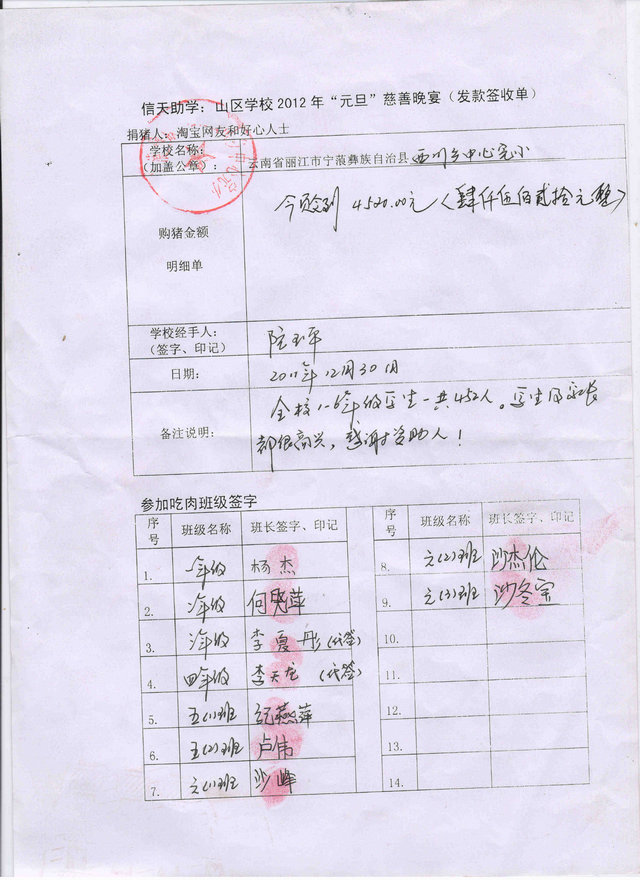 信天助学：山区学校2012年“元旦”慈善晚宴（发款签收单）
捐猪人：淘宝网友和好心人士
学校名称：
（加盖公章：
云南省丽江市宁蒗彝族自治县 西川乡中心完小
购猪金额
明细单
今收到 4520.00元（肆仟伍佰贰拾元整）
学校经手人：
（签字、印记）
日期：
2011年12月30日
备注说明：
全校1-6年级学生一共452人。学生及家长
都很高兴，感谢资助人！
参加吃肉班级签字
序号 班级名称 班长签字、印记
1. 年级 杨杰
2. 年级 何晓萍
3. 年级 李夏彤（代签）
4. 四年级 李天龙（代签）
5. 五(1)班 纪燕萍
6. 五(2)班 卢伟
7. 六(1)班 沙峰
序号 班级名称 班长签字、印记
8. 六(2)班 沙杰伦
9. 六(3)班 沙冬宝
10.
11.
12.
13.
14.